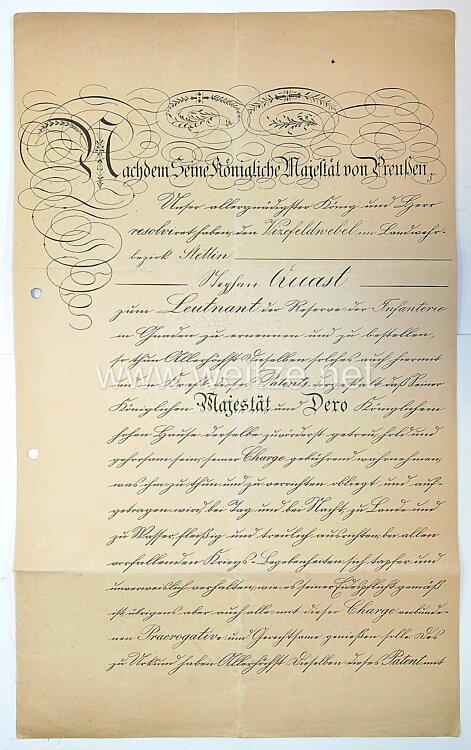 Nachdem Seine Königliche Majestät von Preußen,
Unser allergnädigster König und Herr
resolviret haben, den Vizefeldwebel im Landwehr-
bezirk Stettin
Stephan Quast
zum Leutnant der Reserve der Infanterie
in Gnaden zu ernennen und zu bestellen,
so thun Allerhöchst Dieselben solches auch hiermit
und in Kraft dieses Patents dergestalt, daß Seiner
www.weitze.net
Königlichen Majestät und Dero Königlichem
hohen Hause derselbe zuvörderst getreu, hold und
gehorsam sein, seiner Charge gebührend wahrnehmen,
was ihm zu thun und zu verrichten obliegt und auf-
getragen wird, bei Tag und bei Nacht, zu Lande und
zu Wasser, fleißig und treulich ausrichten, bei allen
vorfallenden Kriegs-Begebenheiten sich tapfer und
unverweislich verhalten, wie es seiner Eidespflicht gemäß
ist, übrigens aber auch alle mit dieser Charge verbunde-
nen Praerogative und Gerechtsame genießen solle. Deß
zu Urkund haben Allerhöchst Dieselben dieses Patent mit